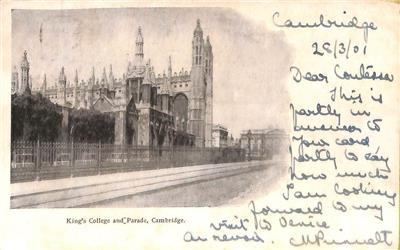 Cambridge
28/3/01
Dear Contessa
This is
partly in
answer to
your card
partly to say
how much
I am looking
forward to my
visit to Venice
Au revoir.
King's College and Parade, Cambridge.